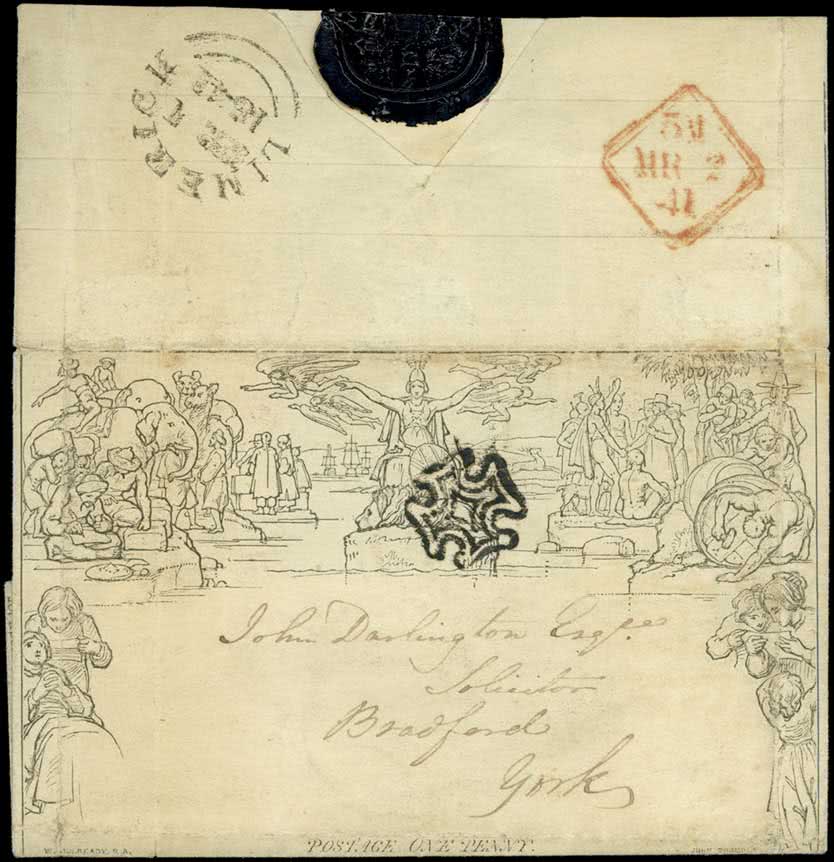 LIMERICK
1841
5M
MR 2
41
John Darlington Esqre
Solicitor
Bradford
York
W. MULREADY, R.A.
POSTAGE ONE PENNY.
JOHN